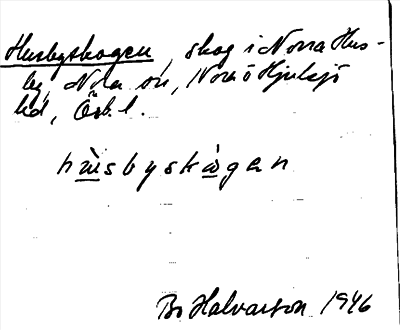 Husbyskogen, skog i Norra Hus-
by, Nora sn, Nora o Hjulsjö
hd, Örb. l.
hùsbyskògen
Bo Halvarson 1946